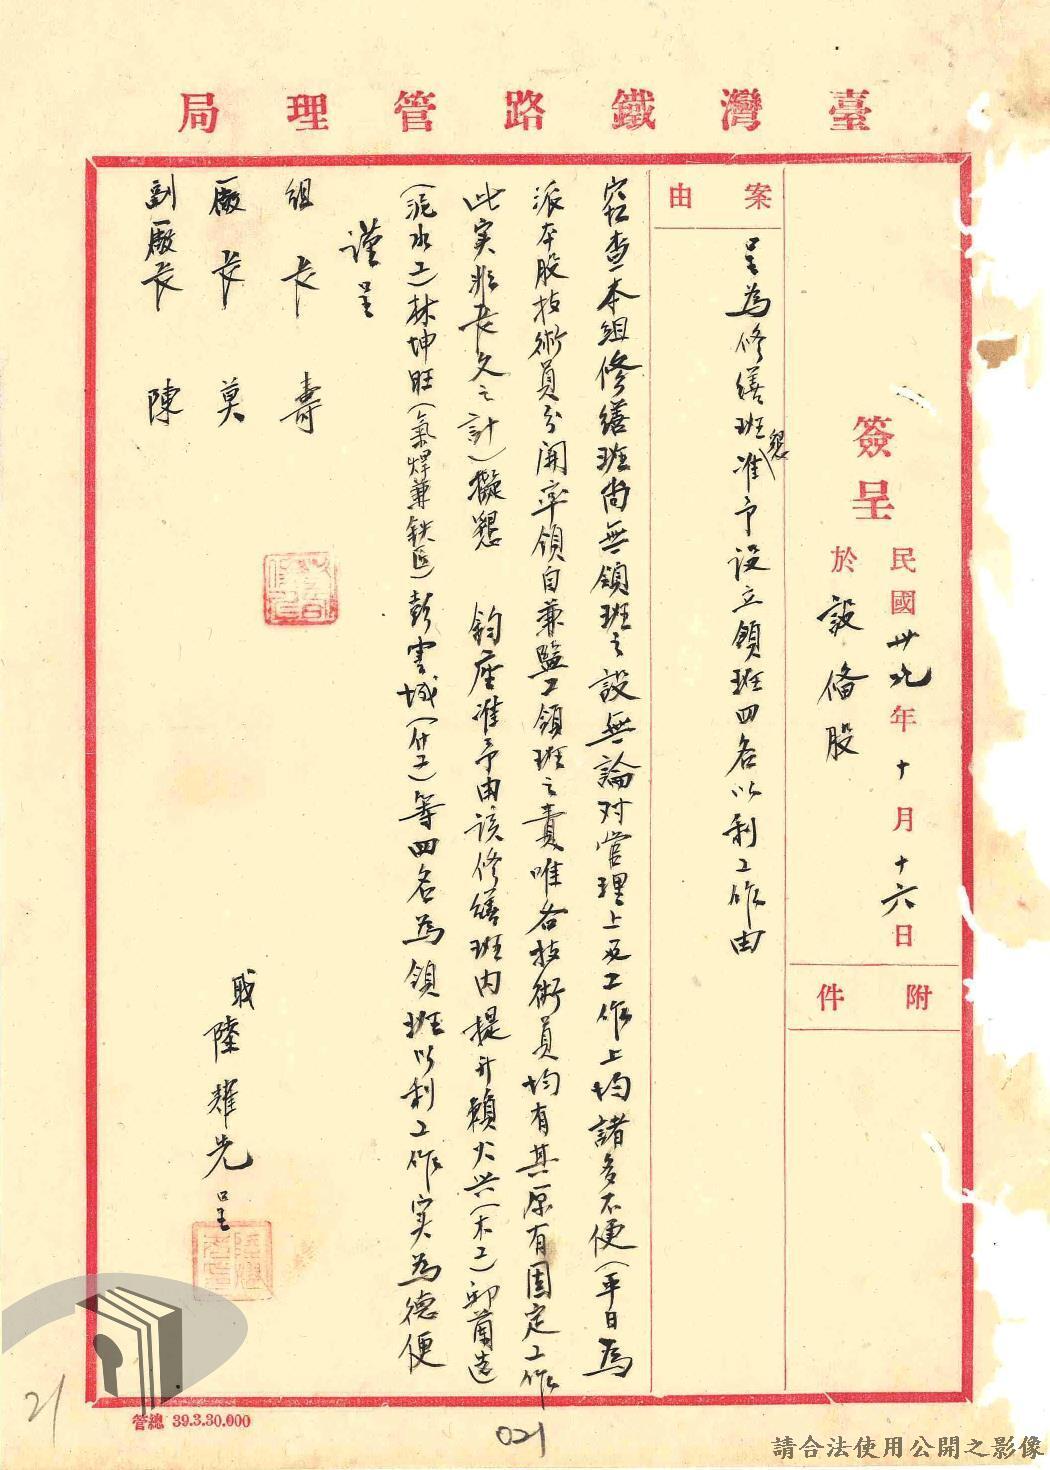 臺灣鐵路管理局
簽呈
民國卅九年十月十六日
於設備股
附件
案由
呈為修繕班懇准予設立領班四名以利工作由
窃查本組修繕班尚無領班之設無論对管理上及工作上均諸多不便(平日為
派本股技術員分開率領自兼監工領班之責唯各技術員均有其原有固定工作
此实非長久之計)擬懇 鈞座准予由該修繕班内提升賴火兴(木工)邱蘭造
(泥水工)林坤旺(氣焊兼鉄工)彭雲城(仕上)等四名為領班以利工作实為德便
謹呈
組長 壽
廠長 莫
副廠長 陳
職陸耀光呈
管總 39.3.30.000
21
021
請合法使用公開之影像